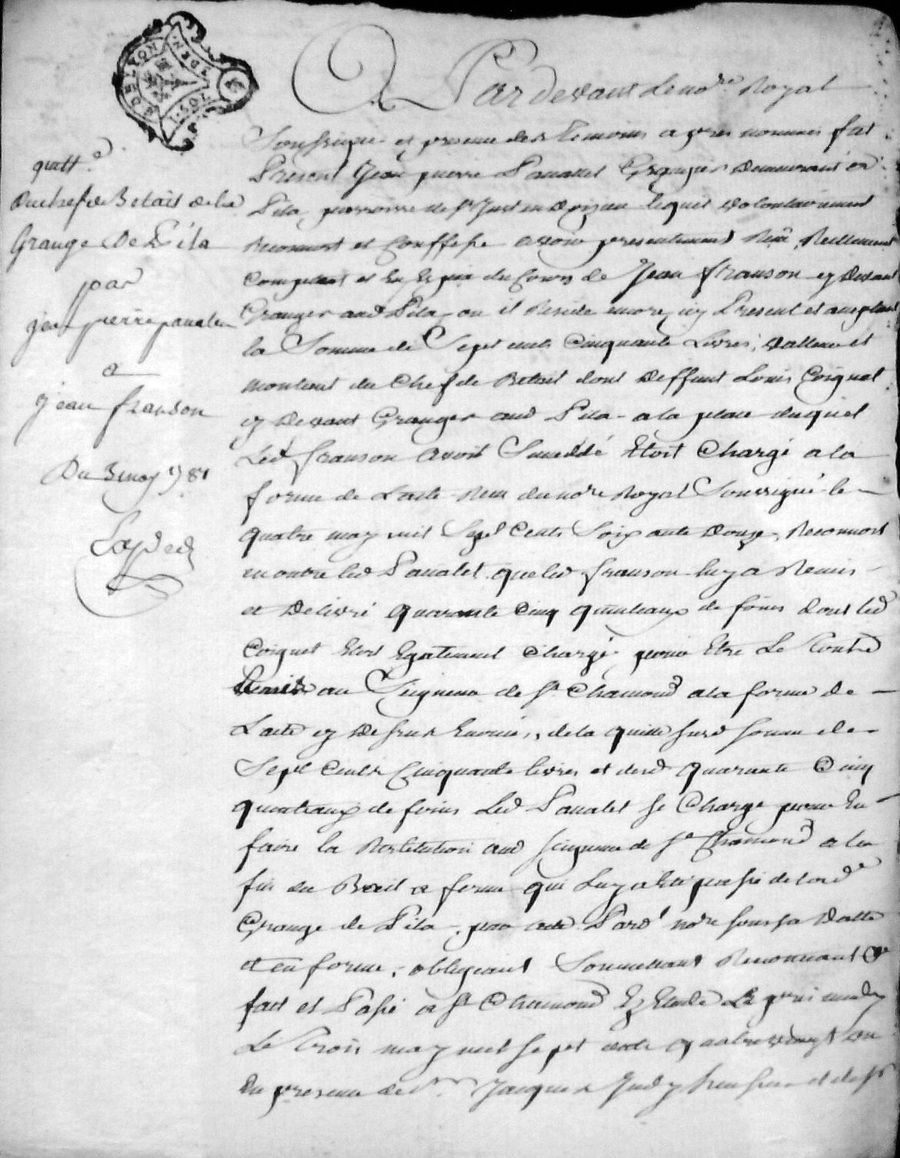 DE LYON
GEN
1.SOL
quitt.ce
Du chef de Betail de la
Grange De Pila
par
jean pierre panalet
a
jean franson
Du 3 may 1781
Pardevant le no.re Royal
Soussigné et presence des temoins apres nommés fut
Present Jean pierre Panalet Granger demeurant en
Pila, parroisse de St Just en doizieu lequel volontairement
Reconnoit et Confesse avoir presentement Reçu Reellement
Comptant et en Especes du Cours de Jean franson cy devant
Granger aud Pila, ou il Reside encore, icy Present et acceptant
la Somme de Sept cents Cinquante Livres, valleur et
montant du Chef de Betail dont Deffunt Louis Coignet
cy devant Granger aud Pila a la place duquel
Led franson avoit Succeddé Etoit Chargé a la
forme de Lacte Reçu du no.re Royal Soussigné le
quatre may mil Sept Cents Soixante douze, Reconnoit
en outre led Panalet que led franson luy a Remis
et Delivré quarante cinq quintaux de foins dont led
Coignet Etoit Egalement Chargé, pour Etre le tout
au Seigneur de St Chamond a la forme de
Lacte cy dessus Enoncé, de la quelle susd somme de
Sept Cents Cinquante livres et desd quarante Cinq
quintaux de foins Led Panalet se Charge pour en
faire la Restitution aud seigneur de St Chamond a la
fin du Bail a ferme qui luy a été passé de lad.e
Grange de Pila, par acte Pard.t no.re soussig.é datte
et en forme, obligeant Soumettant Renonçant &
fait et Passé a St Chamond Etude
Le trois may mil sept cents quatre vingt un
En presence de Jacques et de